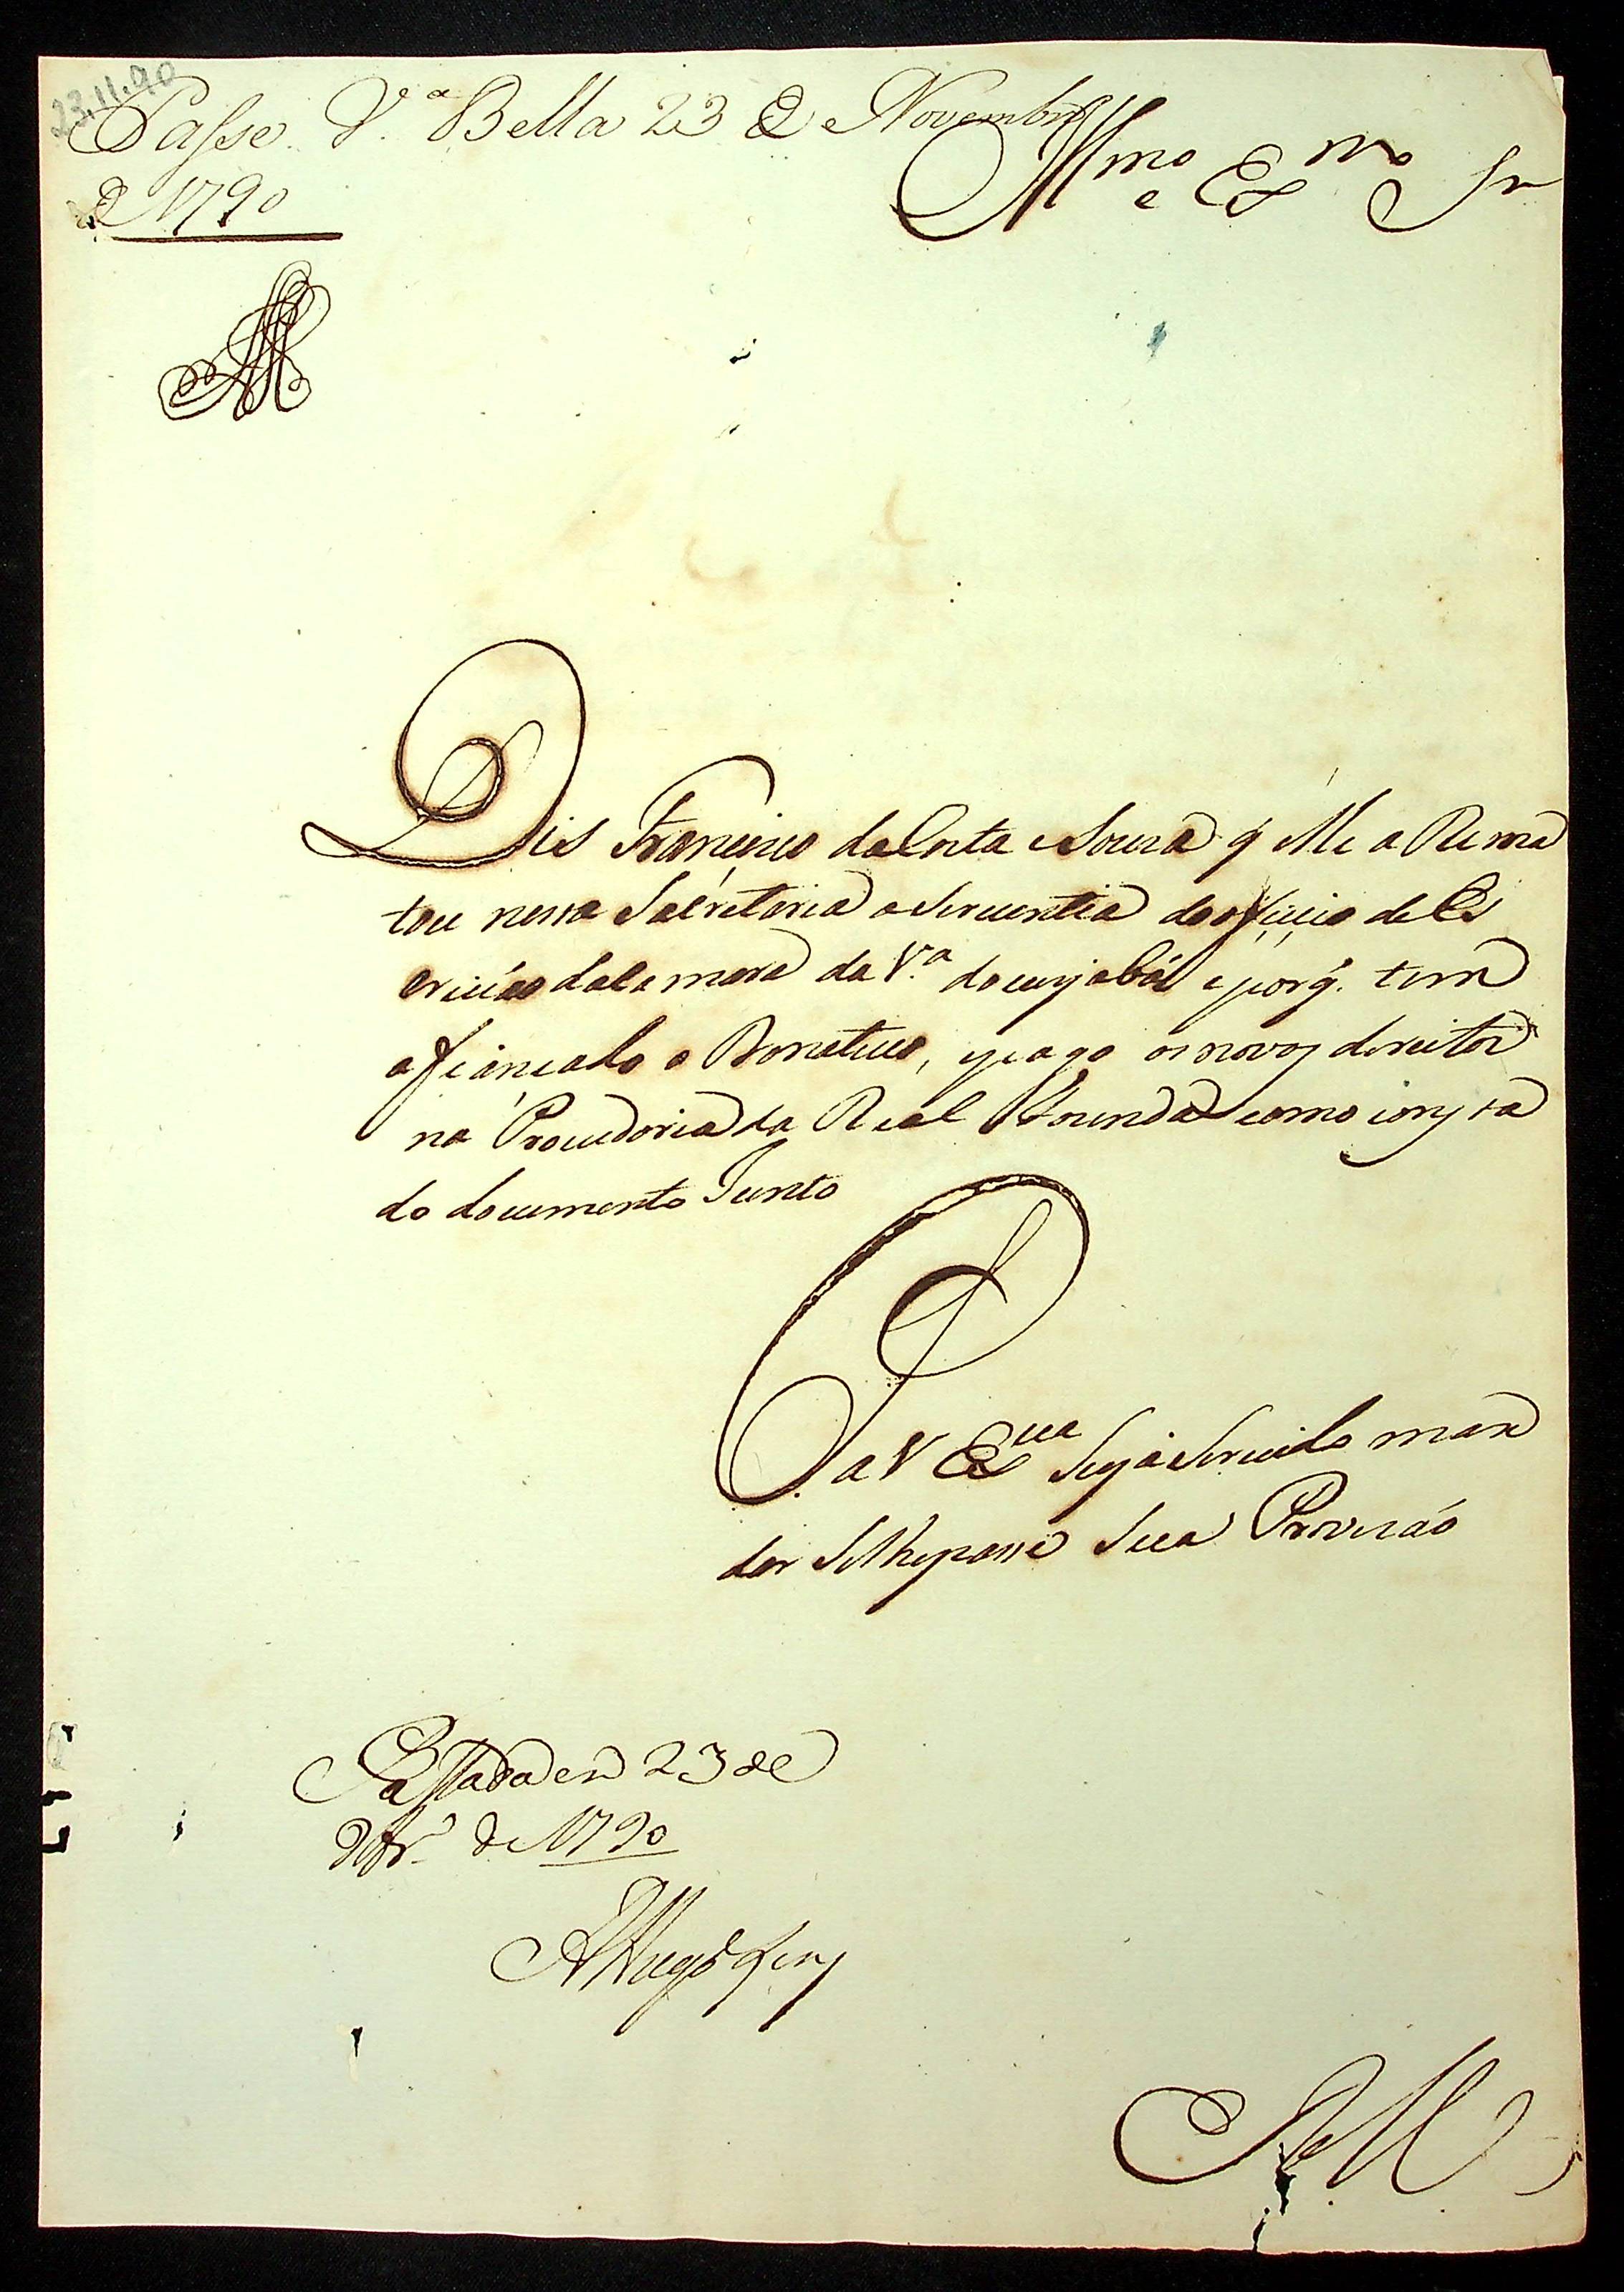 23.11.90
Passe. V.ª Bella 23 de Novembro
de 1790
Illmo e Exmo Sr
Dis Francisco da Costa e Souza q elle a Rema
tou nessa Salretaria a Serventia do oficio de Es
crivão da Camara da V.ª do cuyabá e porq. tem
afiancado o Donativo, e pago os novos direitos
na Provedoria da Real Fazenda como consta
do documento Junto
Pa V Exca Seja Servido man
dar Se lhe passe Sua Provizão
Passada em 23 de
9br.º de 1790